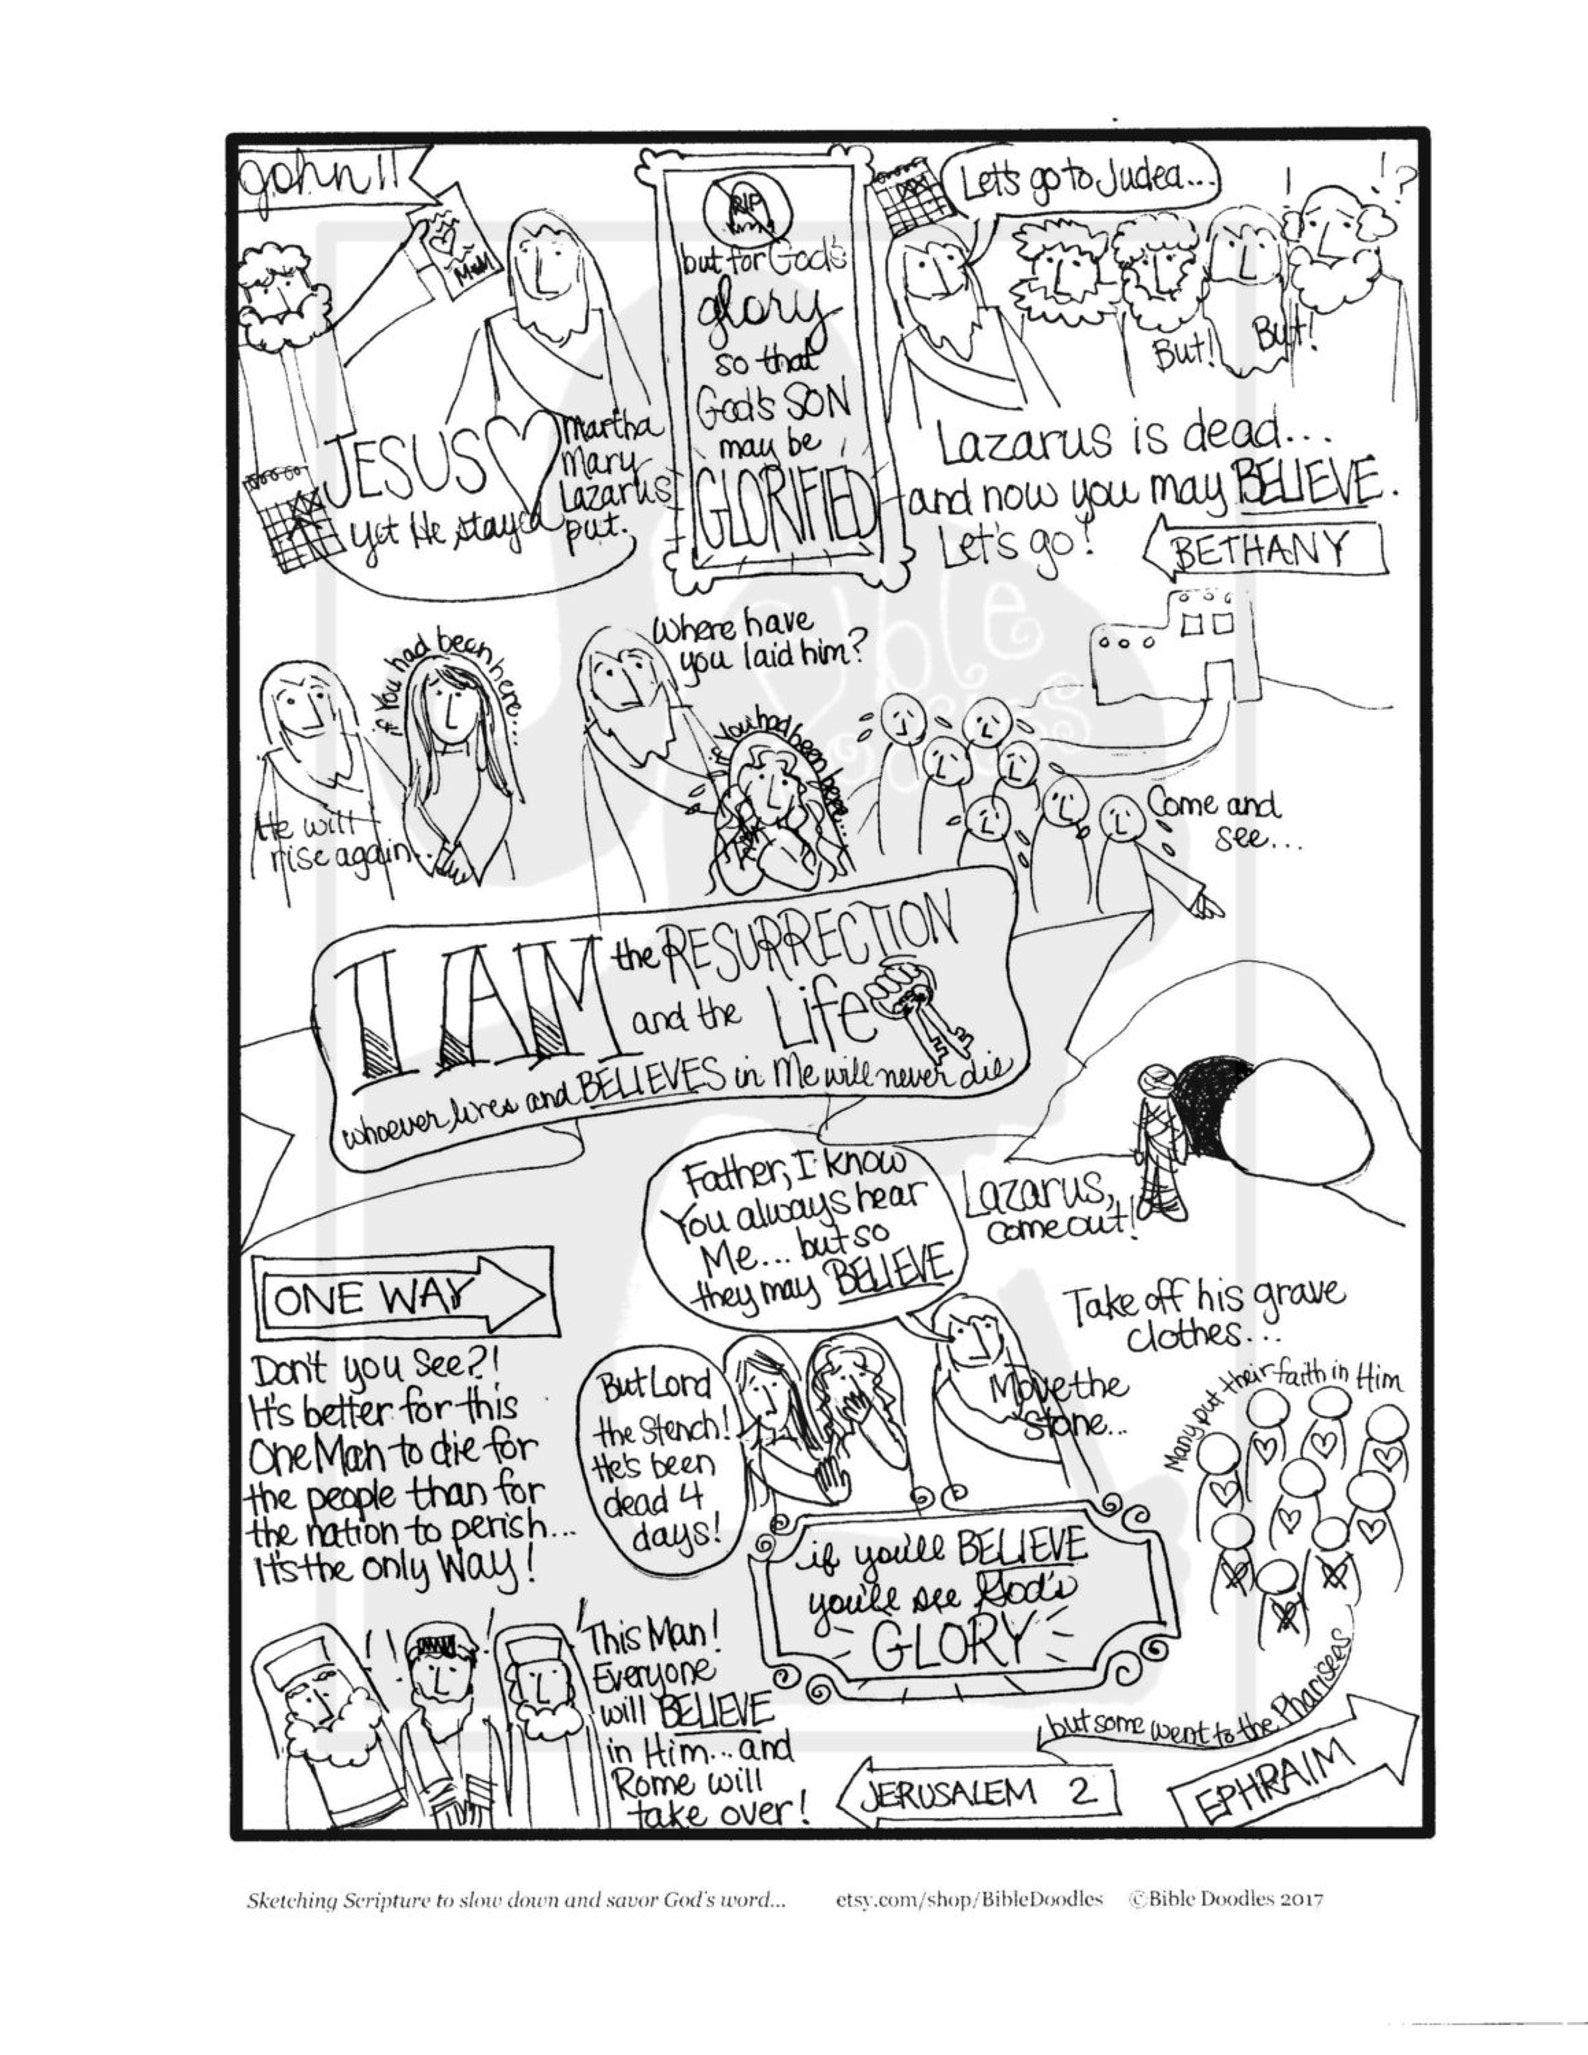 John 11
M&M
JESUS
Martha
Mary
Lazarus
yet He stayed put.
RIP
but for God's
glory
so that
God's SON
may be
GLORIFIED
Let's go to Judea...
! !?
But!
But!
Lazarus is dead...
and now you may BELIEVE.
Let's go!
BETHANY
if You had been here...
He will
rise again...
Where have
you laid him?
if You had been here...
Come and
see...
I AM the RESURRECTION
and the Life
whoever lives and BELIEVES in Me will never die
Lazarus,
come out!
Father, I know
You always hear
Me... but so
they may BELIEVE
But Lord
the Stench!
He's been
dead 4
days!
Move the
stone...
if you'll BELIEVE
you'll see God's
GLORY
Take off his grave
clothes...
Many put their faith in Him
but some went to the Pharisees
ONE WAY
Don't you see?!
It's better for this
One Man to die for
the people than for
the nation to perish...
It's the only Way!
! ! ! !
This Man!
Everyone
will BELIEVE
in Him... and
Rome will
take over!
JERUSALEM 2
EPHRAIM
Bible
Doodles
Sketching Scripture to slow down and savor God's word... etsy.com/shop/BibleDoodles ©Bible Doodles 2017